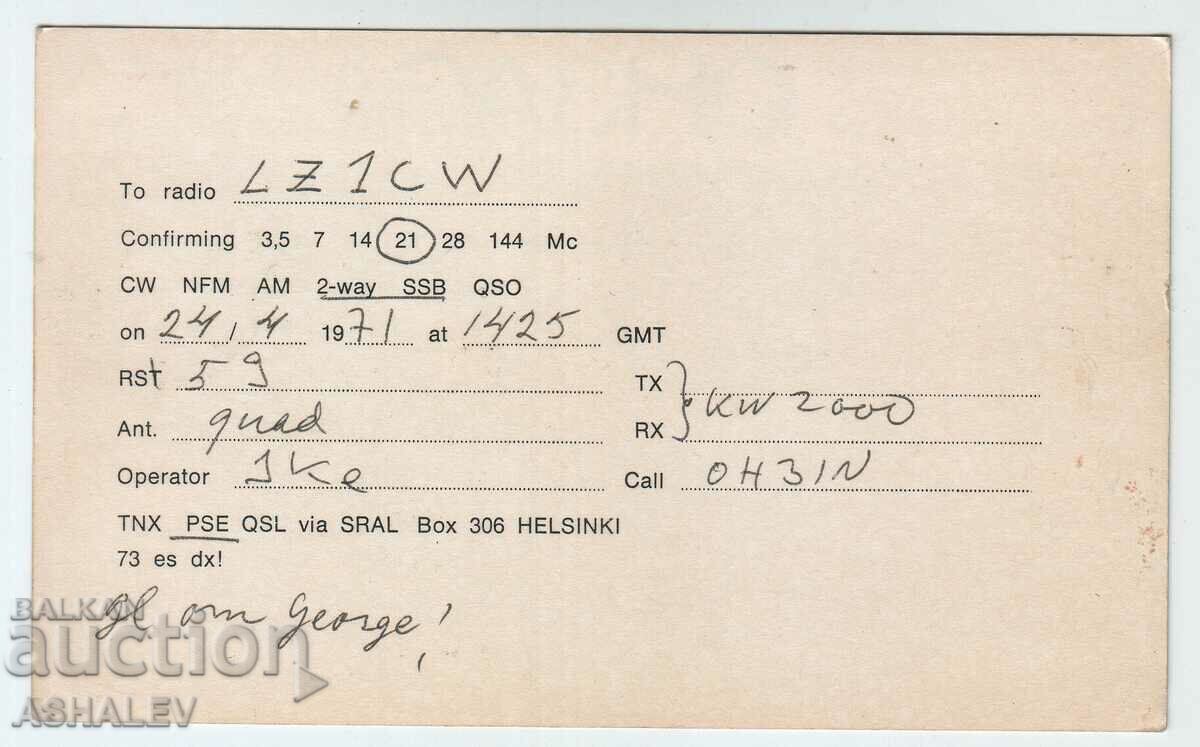 To radio LZ1CW
Confirming 3,5 7 14 21 28 144 Mc
CW NFM AM 2-way SSB QSO
on 24/4 1971 at 1425 GMT
RST 59 TX
KW 2000
Ant. quad RX
Operator Ike Call OH3IN
TNX PSE QSL via SRAL Box 306 HELSINKI
73 es dx!
gl om George!
BALKAN
auction
ASHALEV